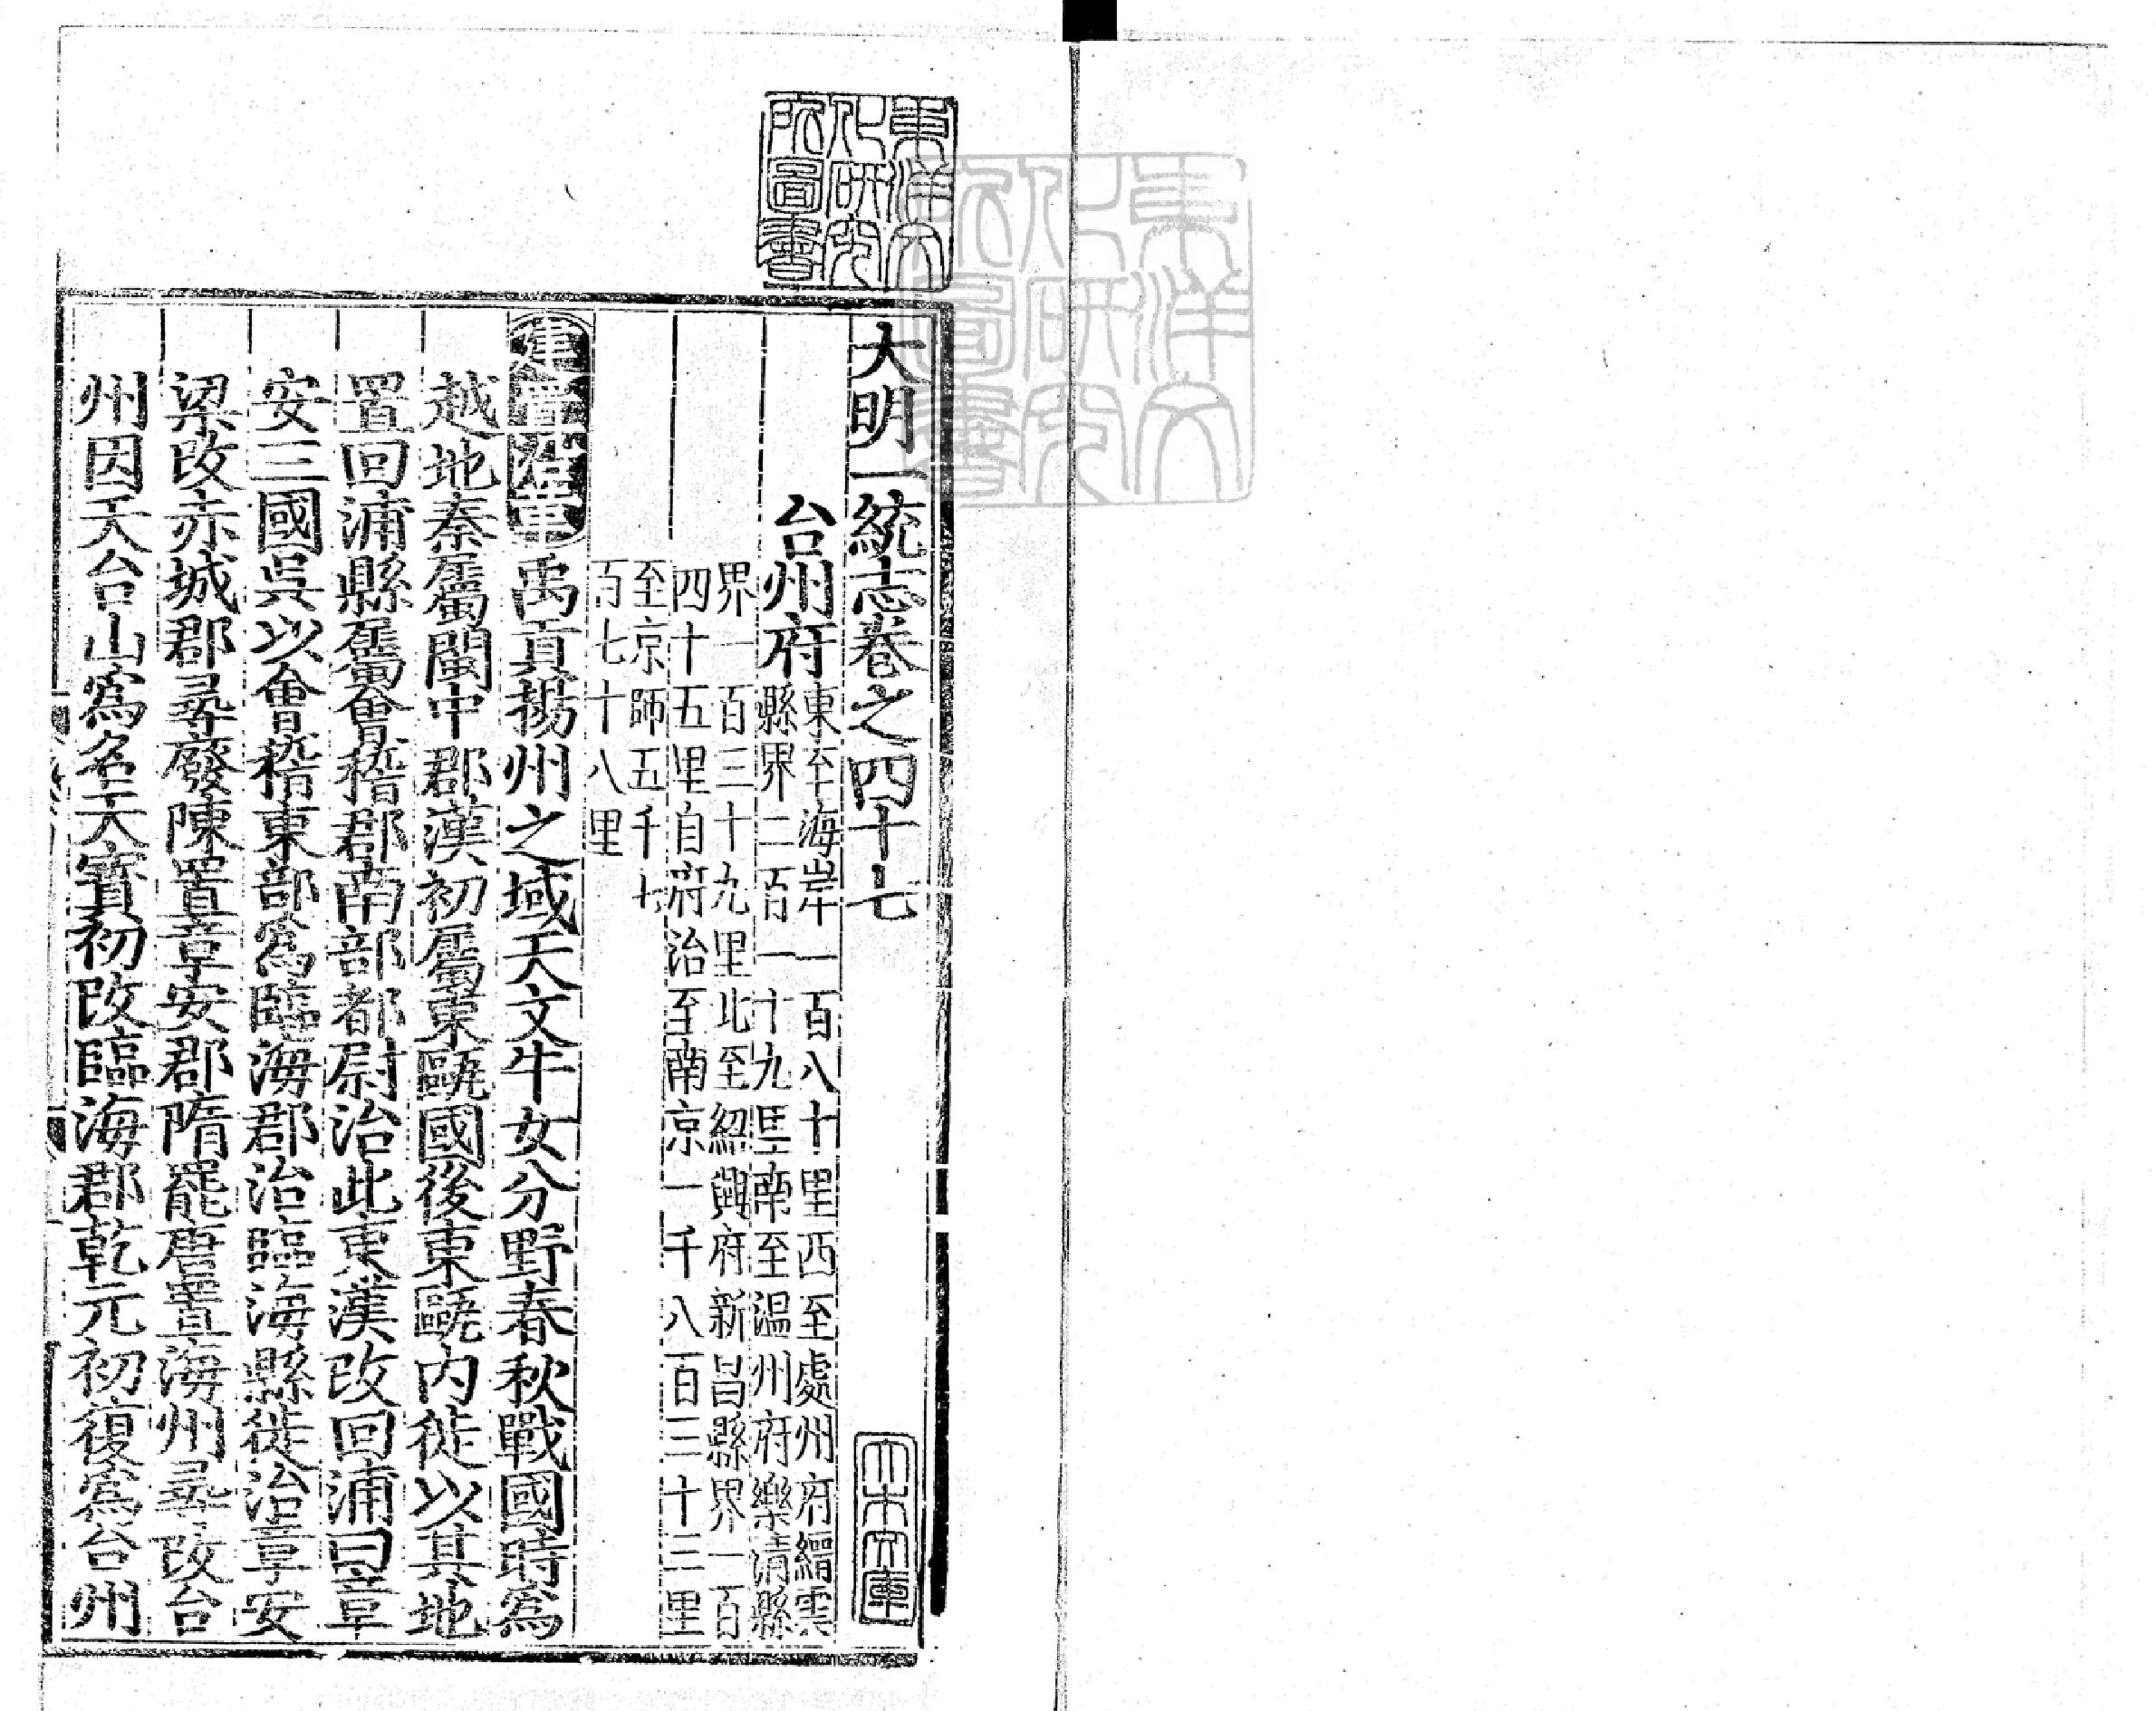 大明一統志卷之四十七
台州府
東至海岸一百八十里西至處州府縉雲
縣界二百一十九里南至溫州府樂清縣
界一百三十九里北至紹興府新昌縣界一百
四十五里自府治至南京一千八百三十三里
至京師五千七
百七十八里
建置沿革
禹貢揚州之域天文牛女分野春秋戰國時爲
越地秦屬閩中郡漢初屬東甌國後東甌内徙以其地
置回浦縣屬會稽郡南部都尉治此東漢改回浦曰章
安三國吳以會稽東部爲臨海郡治臨海縣徙治章安
梁改赤城郡尋廢陳置章安郡隋罷唐置海州尋改台
州因天台山爲名天寶初改臨海郡乾元初復爲台州
東洋文化研究院圖書
東洋文化研究院圖書
大木文庫